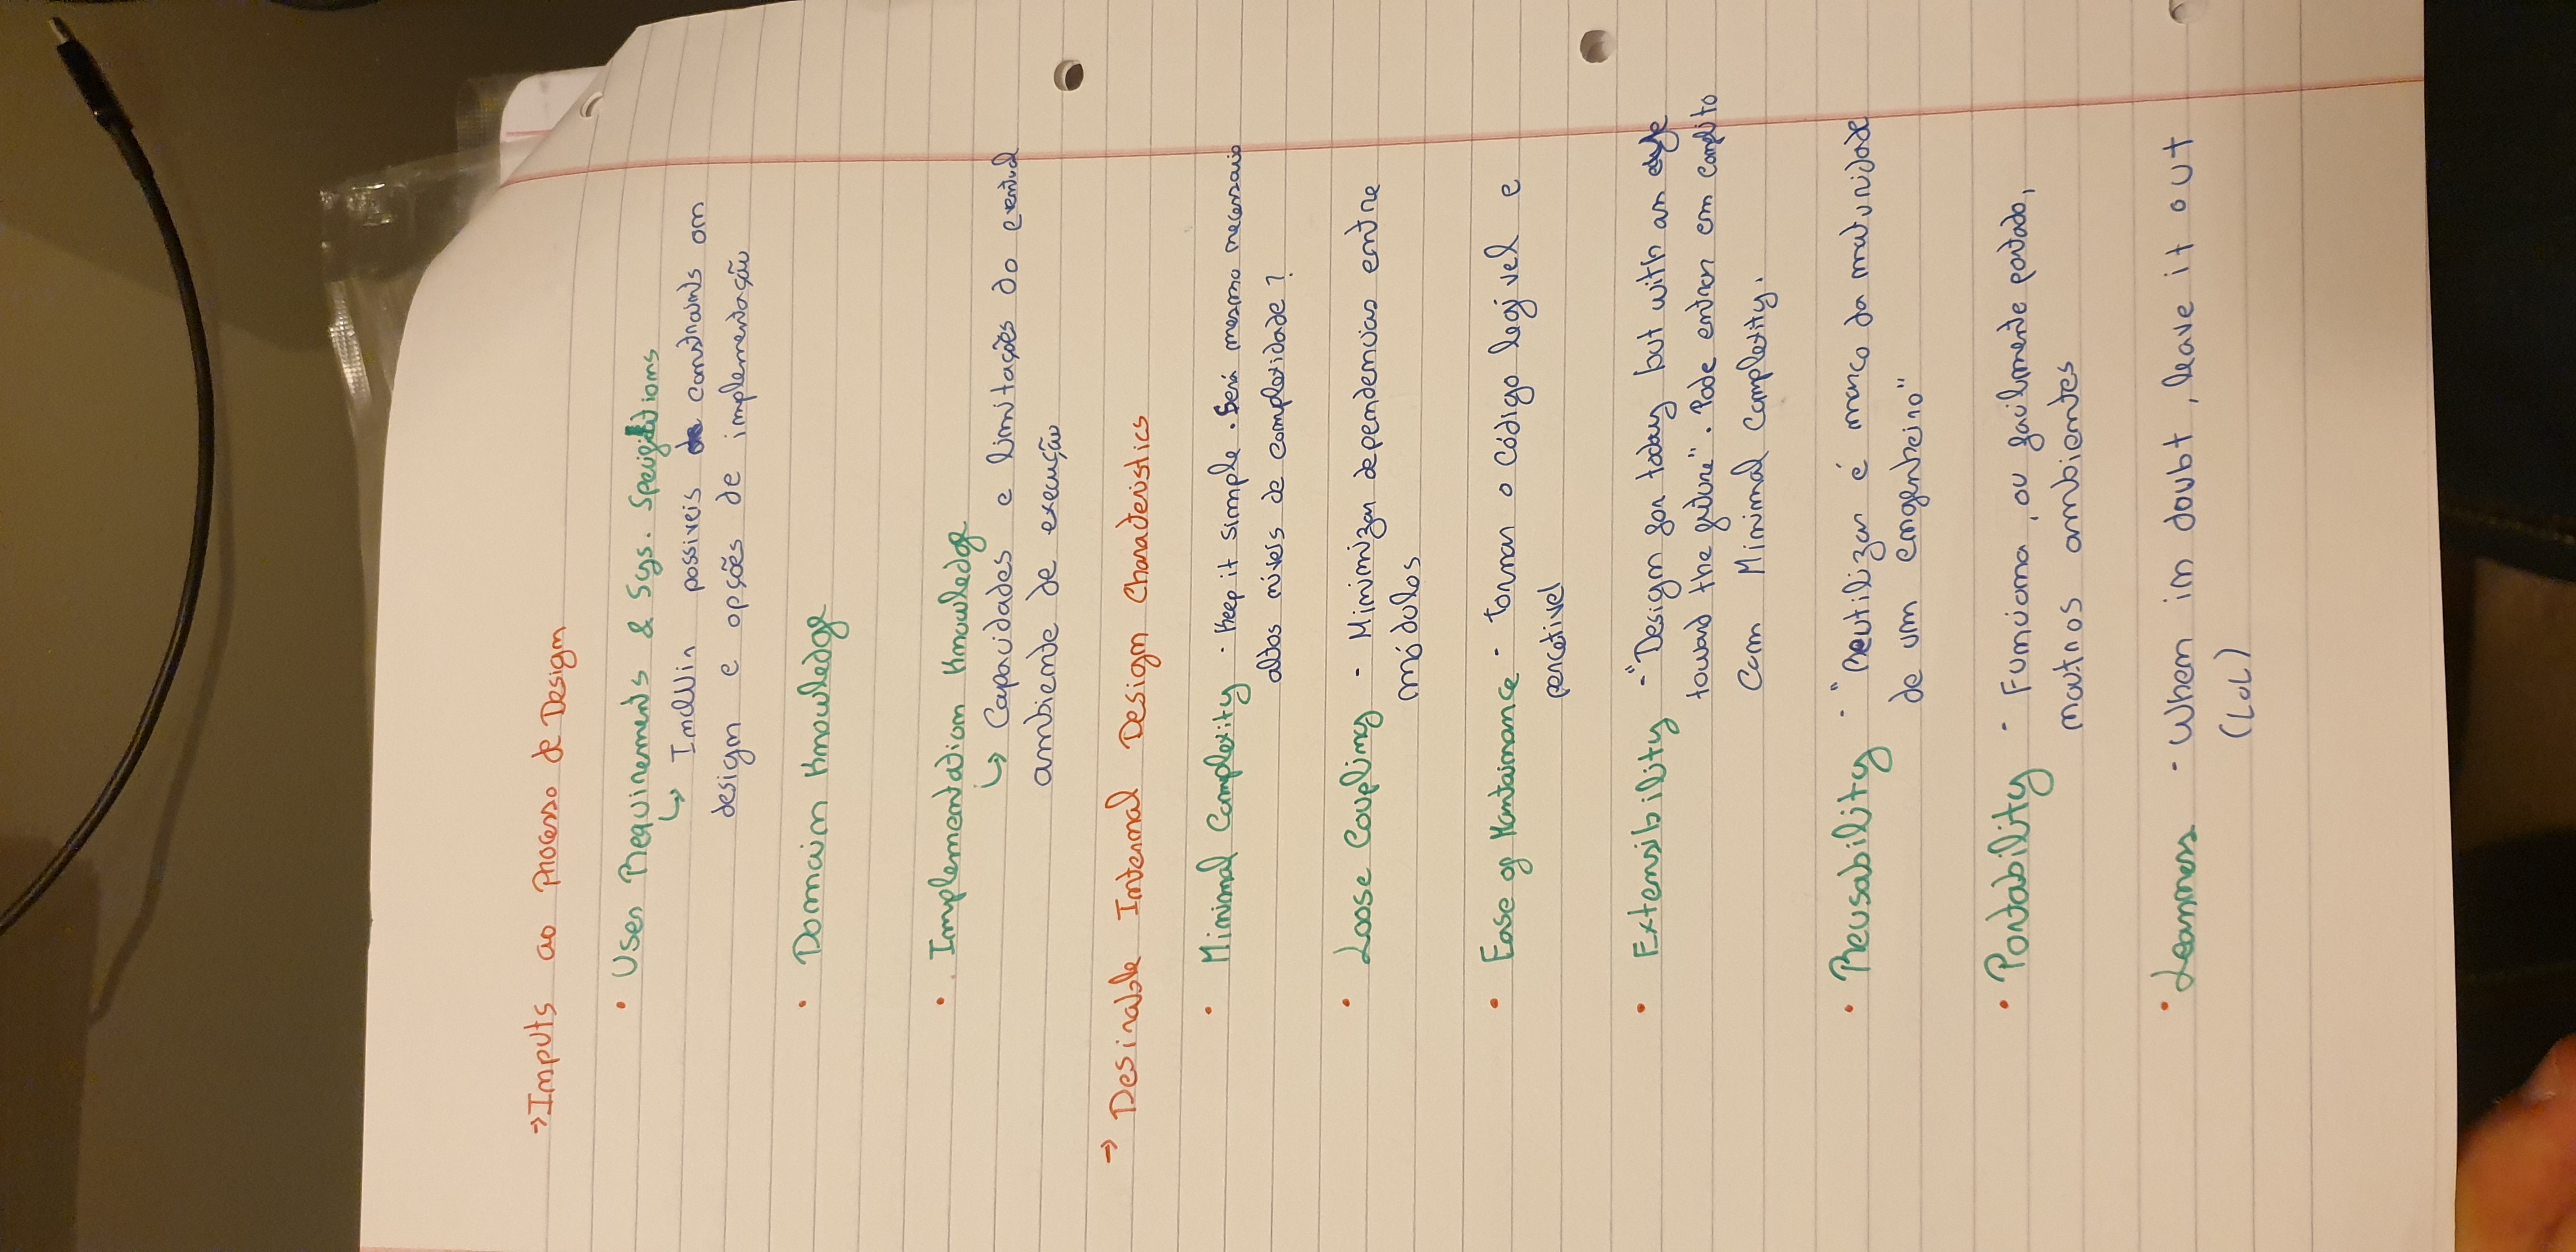 → Inputs ao Processo de Design
• User Requirements & Sys. Specifications
↳ Incluir possiveis constraints on
design e opções de implementação
• Domain Knowledge
• Implementation Knowledge
↳ Capacidades e limitações do eventual
ambiente de execução
→ Desirable Internal Design Characteristics
• Minimal Complexity - Keep it simple. Será mesmo necessario
altos niveis de complexidade?
• Loose Coupling - Minimizar dependencias entre
módulos
• Ease of Mantainance - Tornar o código legivel e
percetivel
• Extensibility - "Design for today but with an eye
toward the future". Pode entrar em conflito
com Minimal Complexity.
• Reusability - "Reutilizar é marco da maturidade
de um engenheiro"
• Portability - Funciona, ou facilmente portado,
noutros ambientes
• Leanness - When in doubt, leave it out
(LOL)